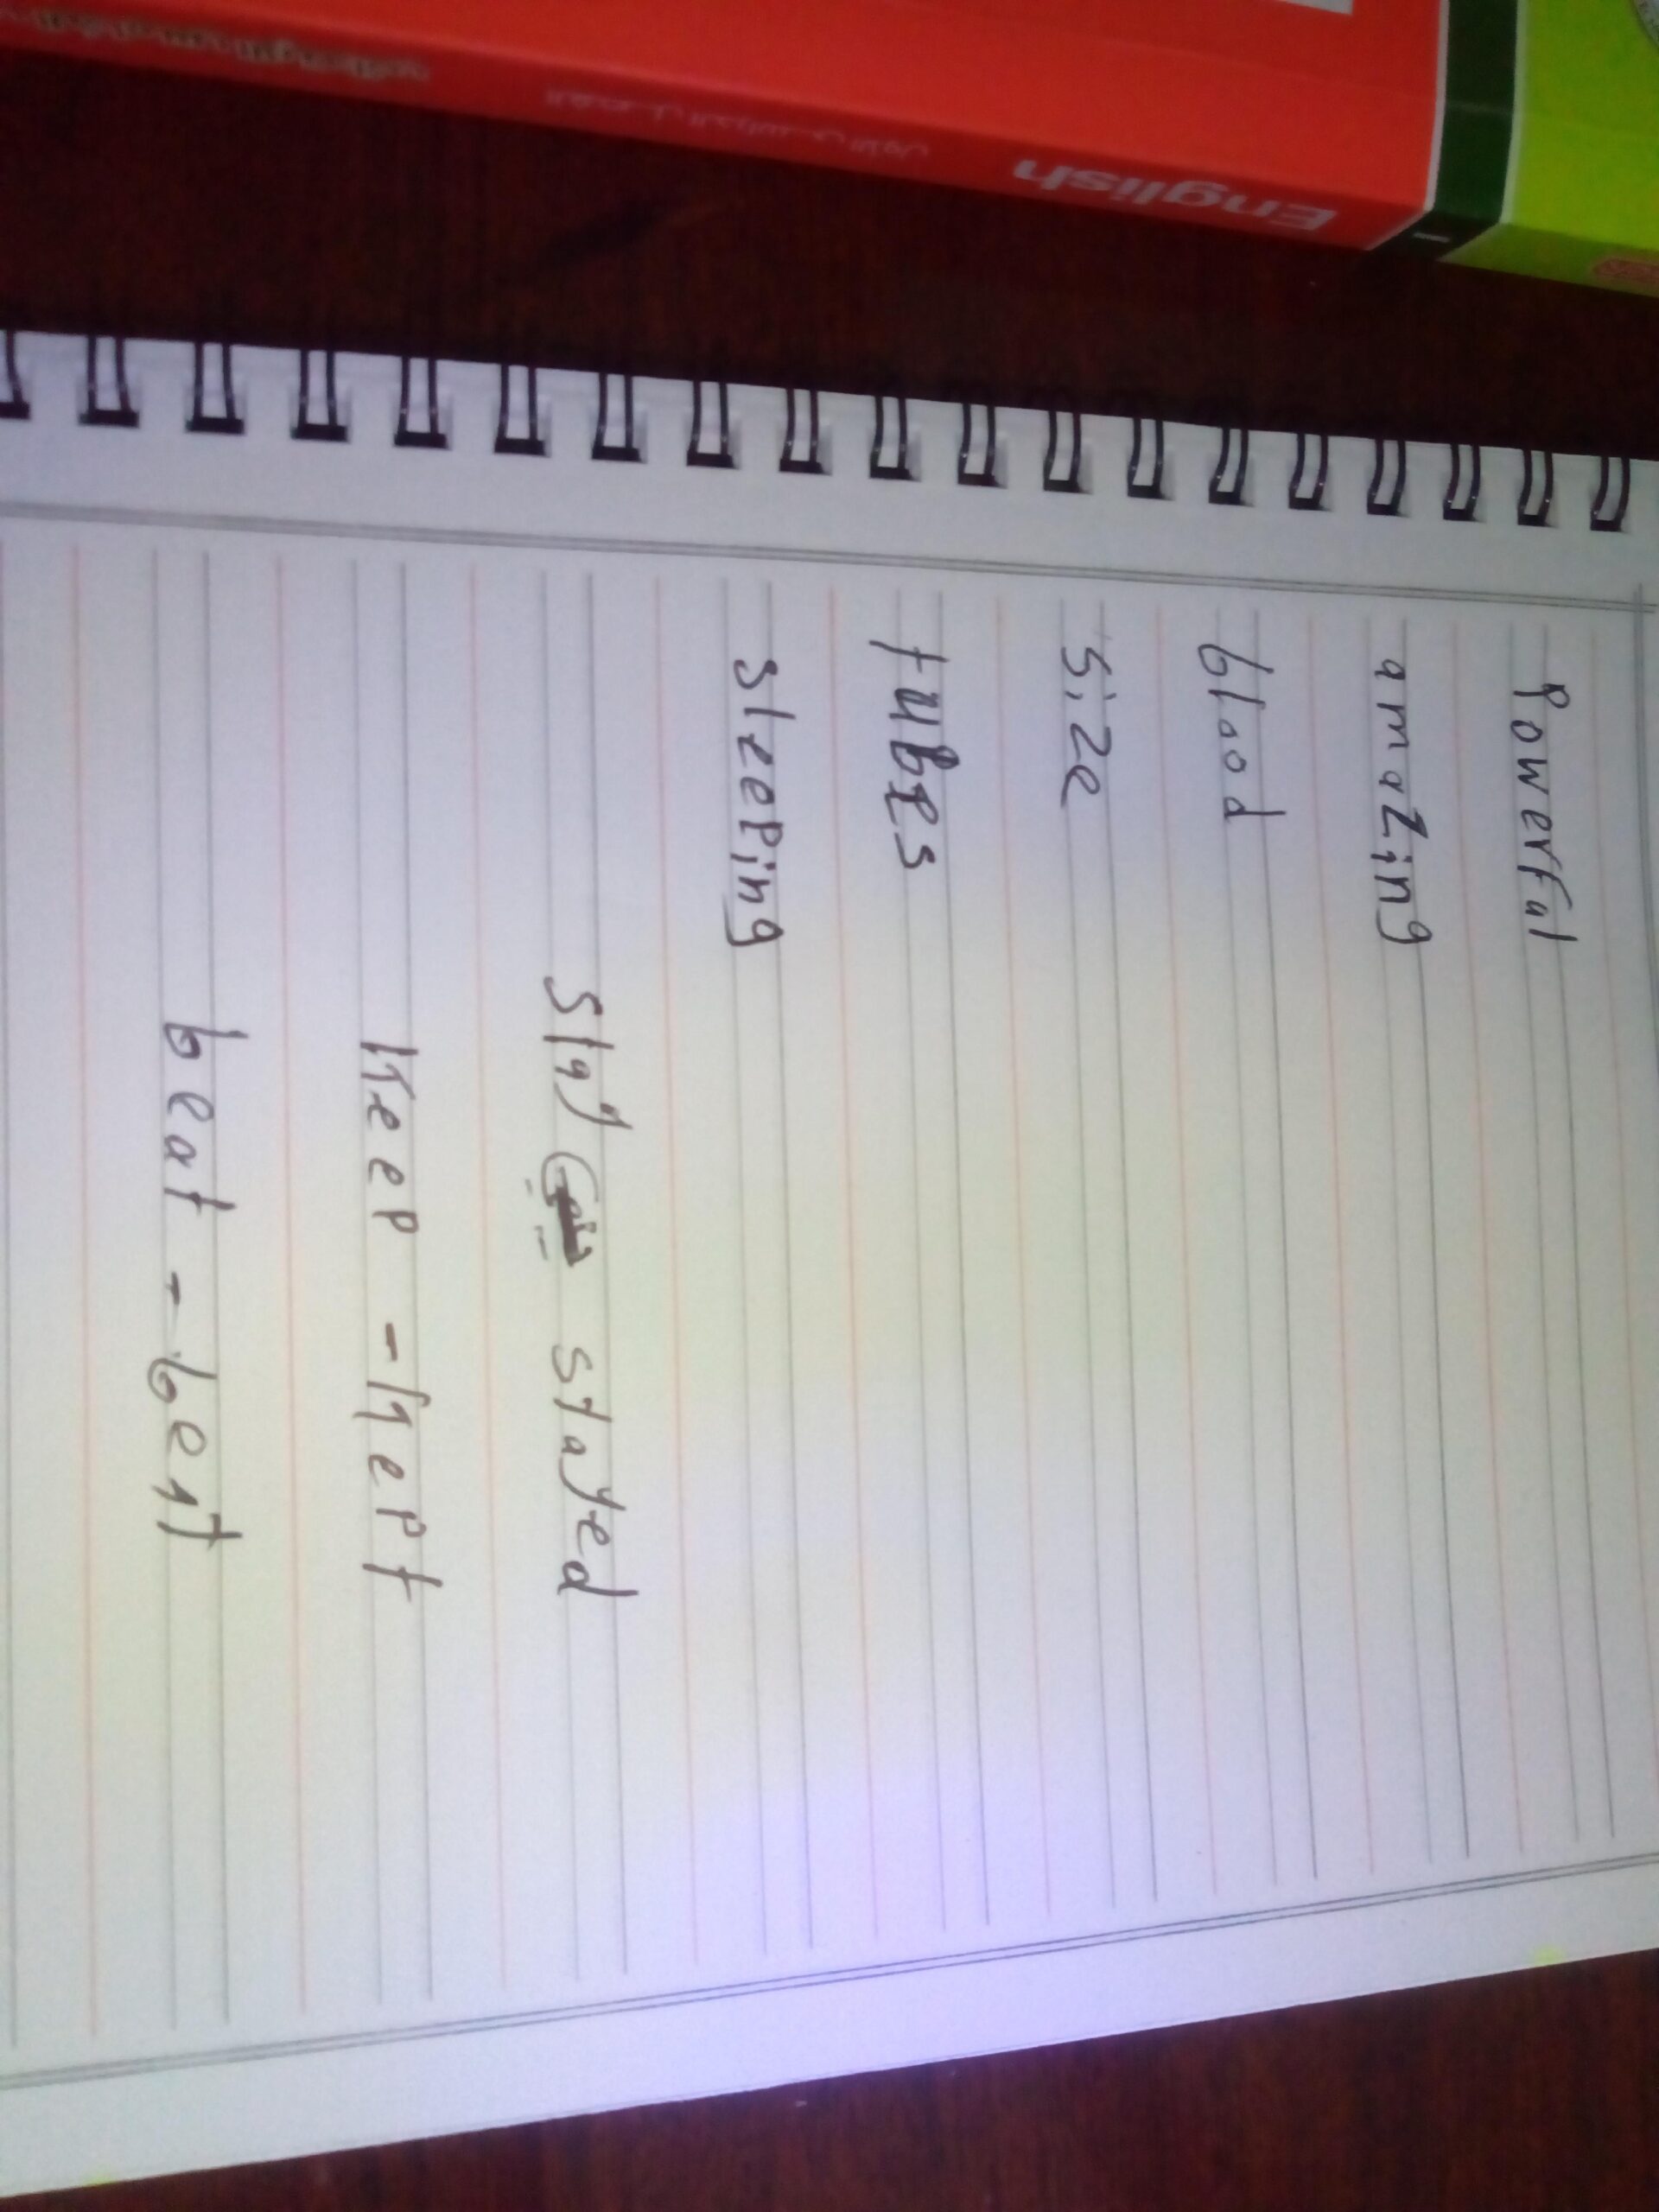 English
الفصل الدراسي الأول
Powerful
amazing
blood
size
tubes
sleeping
stay stayed
Keep - Kept
beat - beat